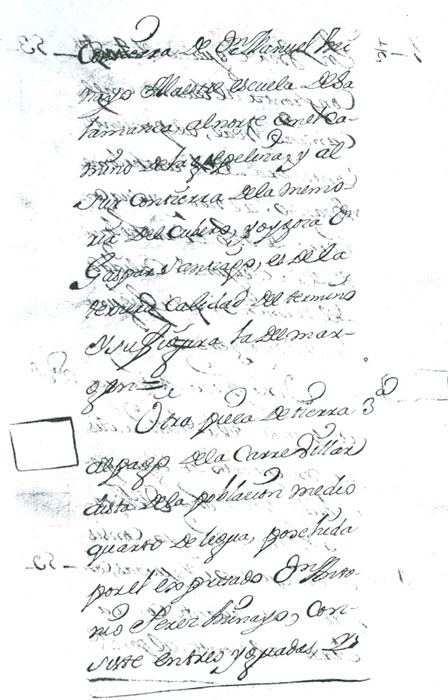 Con tierra de Dn Manuel Mi
nayo Maestre escuela de Sa
lamanca, al norte con el Ca-
mino de la y al
Sur con tierra de la memo
ria del Cubero, y oy goza Dn
Gaspar Santiago, es de la
tercera Calidad del termino
y su figura la del mar-
gen =
Otra pieza de tierra 3a
al pago de la Carre Villar
dista de la poblacion medio
quarto de legua, posehida
por el expresado Dn Anto-
nio Perez Minayo, Con-
siste en tres yguadas, y